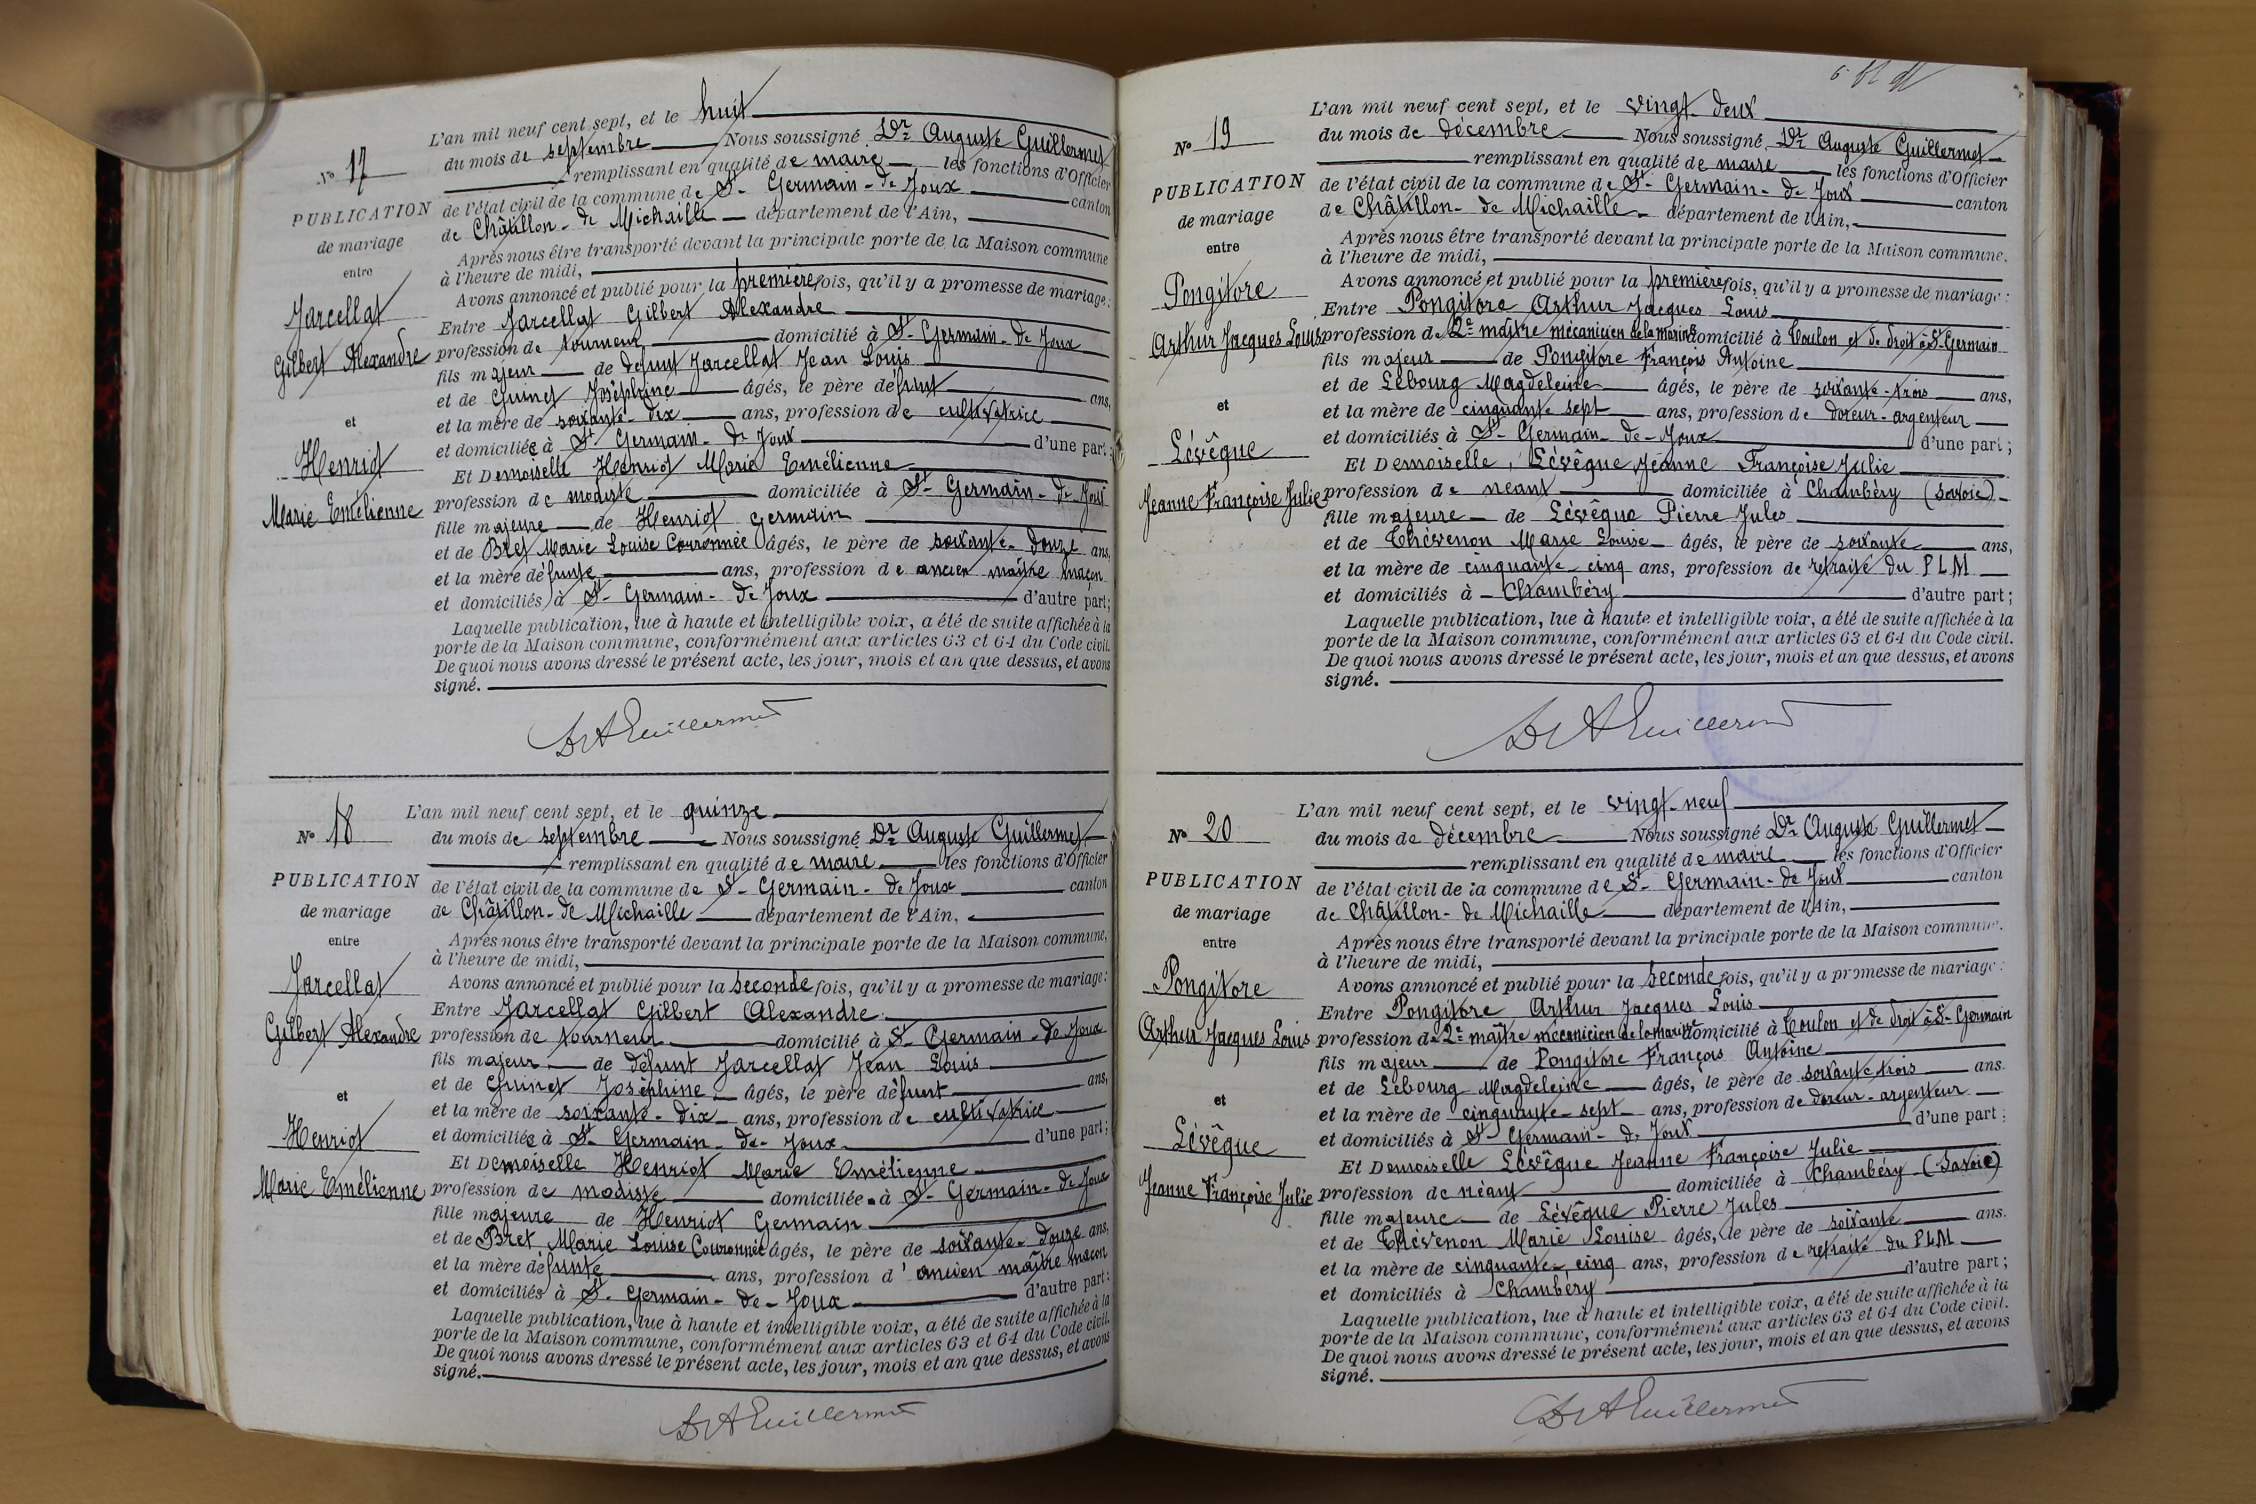 L'an mil neuf cent sept, et le huit
N° 17
du mois de septembre Nous soussigné Dr Auguste Guillermet
remplissant en qualité de maire les fonctions d'Officier
PUBLICATION
de mariage
entre
Jarcellat
Gilbert Alexandre
et
Henriot
Marie Emélienne
de l'état civil de la commune de St-Germain-de Joux canton
de Châtillon-de Michaille département de l'Ain,
Après nous être transporté devant la principale porte de la Maison commune
à l'heure de midi,
Avons annoncé et publié pour la première fois, qu'il y a promesse de mariage:
Entre Jarcellat Gilbert Alexandre
profession de tourneur domicilié à St-Germain-de Joux
fils majeur de défunt Jarcellat Jean Louis
et de Guinet Joséphine âgés, le père défunt ans,
et la mère de soixante-dix ans, profession de cultivatrice
et domiciliée à St Germain-de Joux d'une part;
Et Demoiselle Henriot Marie Emélienne
profession de modiste domiciliée à St-Germain-de Joux
fille majeure de Henriot Germain
et de Bret Marie Louise Couronnée âgés, le père de soixante-douze ans,
et la mère défunte ans, profession de ancien maître maçon
et domiciliés à St-Germain-de Joux d'autre part;
Laquelle publication, lue à haute et intelligible voix, a été de suite affichée à la
porte de la Maison commune, conformément aux articles 63 et 64 du Code civil.
De quoi nous avons dressé le présent acte, les jour, mois et an que dessus, et avons
signé.
Dr A Guillermet
L'an mil neuf cent sept, et le quinze
N° 18
du mois de septembre Nous soussigné Dr Auguste Guillermet
remplissant en qualité de maire les fonctions d'Officier
PUBLICATION
de mariage
entre
Jarcellat
Gilbert Alexandre
et
Henriot
Marie Emélienne
de l'état civil de la commune de St-Germain-de Joux canton
de Châtillon-de Michaille département de l'Ain,
Après nous être transporté devant la principale porte de la Maison commune,
à l'heure de midi,
Avons annoncé et publié pour la seconde fois, qu'il y a promesse de mariage:
Entre Jarcellat Gilbert Alexandre
profession de tourneur domicilié à St-Germain-de Joux
fils majeur de défunt Jarcellat Jean Louis
et de Guinet Joséphine âgés, le père défunt ans,
et la mère de soixante-dix ans, profession de cultivatrice
et domiciliée à St-Germain-de-Joux d'une part;
Et Demoiselle Henriot Marie Emélienne
profession de modiste domiciliée à St-Germain-de Joux
fille majeure de Henriot Germain
et de Bret Marie Louise Couronnée âgés, le père de soixante-douze ans,
et la mère défunte ans, profession d' ancien maître maçon
et domiciliés à St-Germain-de-Joux d'autre part;
Laquelle publication, lue à haute et intelligible voix, a été de suite affichée à la
porte de la Maison commune, conformément aux articles 63 et 64 du Code civil.
De quoi nous avons dressé le présent acte, les jour, mois et an que dessus, et avons
signé.
Dr A Guillermet
L'an mil neuf cent sept, et le vingt-deux
N° 19
du mois de décembre Nous soussigné Dr Auguste Guillermet
remplissant en qualité de maire les fonctions d'Officier
PUBLICATION
de mariage
entre
Pongitore
Arthur Jacques Louis
et
Lévêque
Jeanne Françoise Julie
de l'état civil de la commune de St-Germain-de Joux canton
de Châtillon-de Michaille département de l'Ain,
Après nous être transporté devant la principale porte de la Maison commune.
à l'heure de midi,
Avons annoncé et publié pour la première fois, qu'il y a promesse de mariage:
Entre Pongitore Arthur Jacques Louis
profession de 2e maître mécanicien de la marine domicilié à Toulon et de droit à St-Germain
fils majeur de Pongitore François Antoine
et de Lebourg Magdeleine âgés, le père de soixante-trois ans,
et la mère de cinquante sept ans, profession de doreur-argenteur
et domiciliés à St-Germain-de-Joux d'une part;
Et Demoiselle, Lévêque Jeanne Françoise Julie
profession de néant domiciliée à Chambéry (Savoie)
fille majeure de Lévêque Pierre Jules
et de Thévenon Marie Louise âgés, le père de soixante ans,
et la mère de cinquante-cinq ans, profession de retraité du PLM
et domiciliés à Chambéry d'autre part;
Laquelle publication, lue à haute et intelligible voix, a été de suite affichée à la
porte de la Maison commune, conformément aux articles 63 et 64 du Code civil.
De quoi nous avons dressé le présent acte, les jour, mois et an que dessus, et avons
signé.
Dr A Guillermet
L'an mil neuf cent sept, et le vingt-neuf
N° 20
du mois de décembre Nous soussigné Dr Auguste Guillermet
remplissant en qualité de maire les fonctions d'Officier
PUBLICATION
de mariage
entre
Pongitore
Arthur Jacques Louis
et
Lévêque
Jeanne Françoise Julie
de l'état civil de la commune de St-Germain-de Joux canton
de Châtillon-de Michaille département de l'Ain,
Après nous être transporté devant la principale porte de la Maison commune.
à l'heure de midi,
Avons annoncé et publié pour la seconde fois, qu'il y a promesse de mariage:
Entre Pongitore Arthur Jacques Louis
profession de 2e maître mécanicien de la marine domicilié à Toulon et de droit à St-Germain
fils majeur de Pongitore François Antoine
et de Lebourg Magdeleine âgés, le père de soixante trois ans.
et la mère de cinquante-sept ans, profession de doreur-argenteur
et domiciliés à St-Germain-de Joux d'une part;
Et Demoiselle Lévêque Jeanne Françoise Julie
profession de néant domiciliée à Chambéry-(Savoie)
fille majeure de Lévêque Pierre Jules
et de Thévenon Marie Louise âgés, le père de soixante ans.
et la mère de cinquante-cinq ans, profession de retraité du PLM
et domiciliés à Chambéry d'autre part;
Laquelle publication, lue à haute et intelligible voix, a été de suite affichée à la
porte de la Maison commune, conformément aux articles 63 et 64 du Code civil.
De quoi nous avons dressé le présent acte, les jour, mois et an que dessus, et avons
signé.
Dr A Guillermet